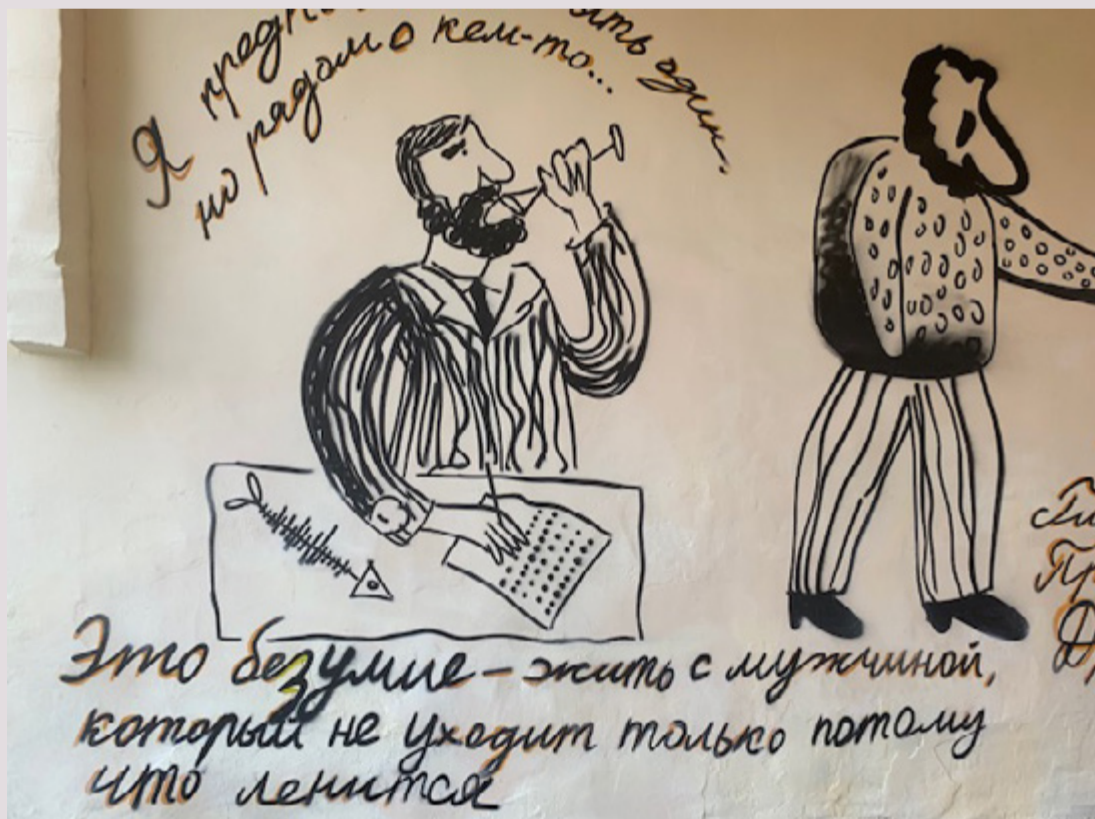 Я один,
но рядом с кем-то...
Это безумие – жить с мужчиной,
который не уходит только потому
что ленится